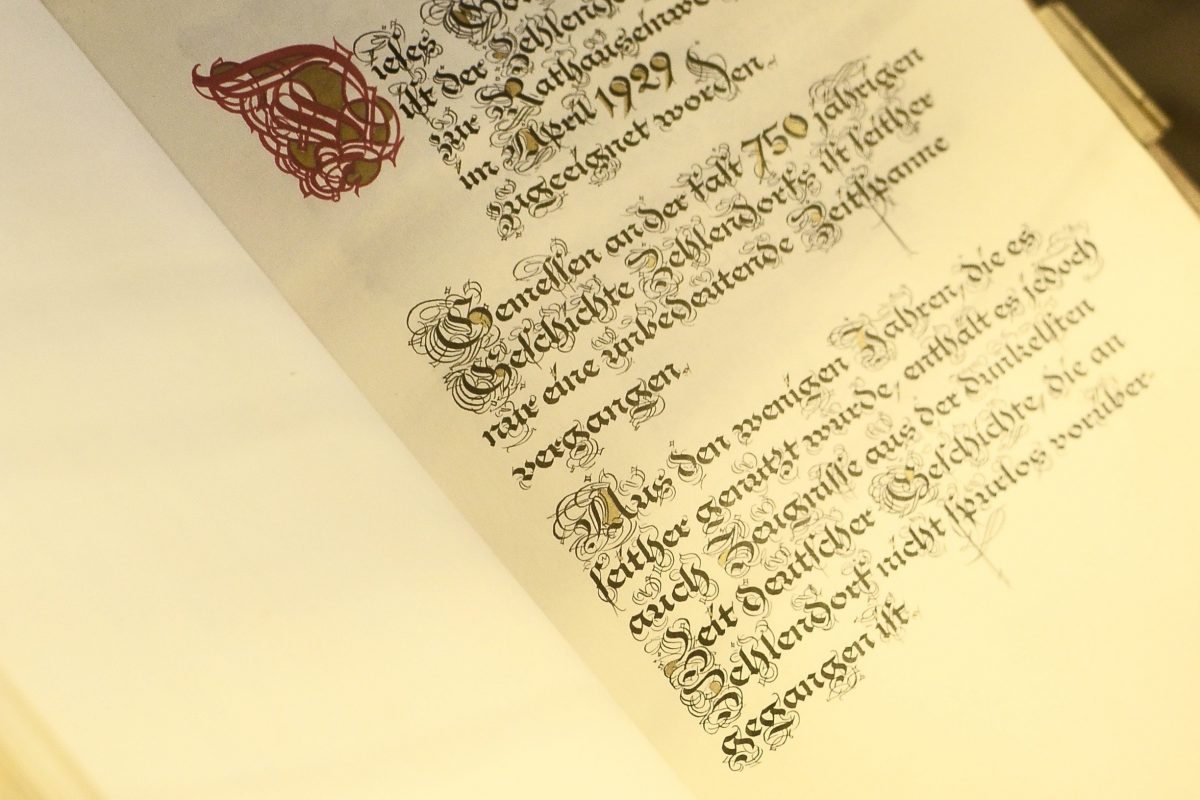 Dieses
ist der Zehlendo
zur Rathauseinwe
im April 1929
zugeeignet worden.
Gemessen an der fast 750 jährigen
Geschichte Zehlendorfs ist seither
nur eine unbedeutende Zeitspanne
vergangen.
Aus den wenigen Jahren, die es
seither genutzt wurde, enthält es jedoch
auch Zeugnisse aus der dunkelsten
Zeit deutscher Geschichte, die an
Zehlendorf nicht spurlos vorüber-
gegangen ist.